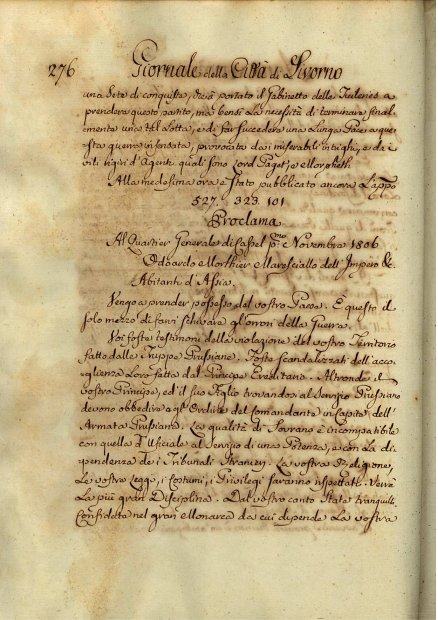 276 Giornale della Città di Livorno
una Sete di conquista, che à portato il Gabinetto delle Tuileries a
prendere questo partito, ma bensì la necessità di terminare final-
mente una tal Lotta, e di far succedere una Lunga Pace a que-
sta guerra insensata, provocata dai miserabili intrighi, e da i
vili Agenti quali sono Lord Paget, e Morpheth
Alla medesima ora è stato pubblicato ancora L'appo
527. 323. 101
Proclama
Al Quartier Generale di Cassel pmo Novembre 1806
Odoardo Morthier Maresciallo dell'Impero &c.
Abitanti d'Assia.
Vengo a prender possesso del vostro Paese. È questo il
solo mezzo di farvi schivare gl'orrori della Guerra.
Voi foste testimoni della violazione del vostro Territorio
fatto dalle Truppe Prussiane. Foste scandalizzati dell'acco-
glienza Loro fatta dal Principe Ereditario. Altronde il
vostro Principe, ed il suo Figlio trovandosi al Servizio Prussiano
devono obbedire a gl'Ordini del Comandante in Capite dell'
Armata Prussiana. La qualità di Sovrano è incompatibile
con quella d'Ufficiale al Servizio di una Potenza, e con La di-
pendenza de i Tribunali Stranieri. La vostra Religione,
Le vostre Leggi, i Costumi, i Privilegi saranno rispettati. Verrà
La più gran Disciplina. Dal vostro canto State tranquilli.
Confidate nel gran Monarca da cui dipende La vostra